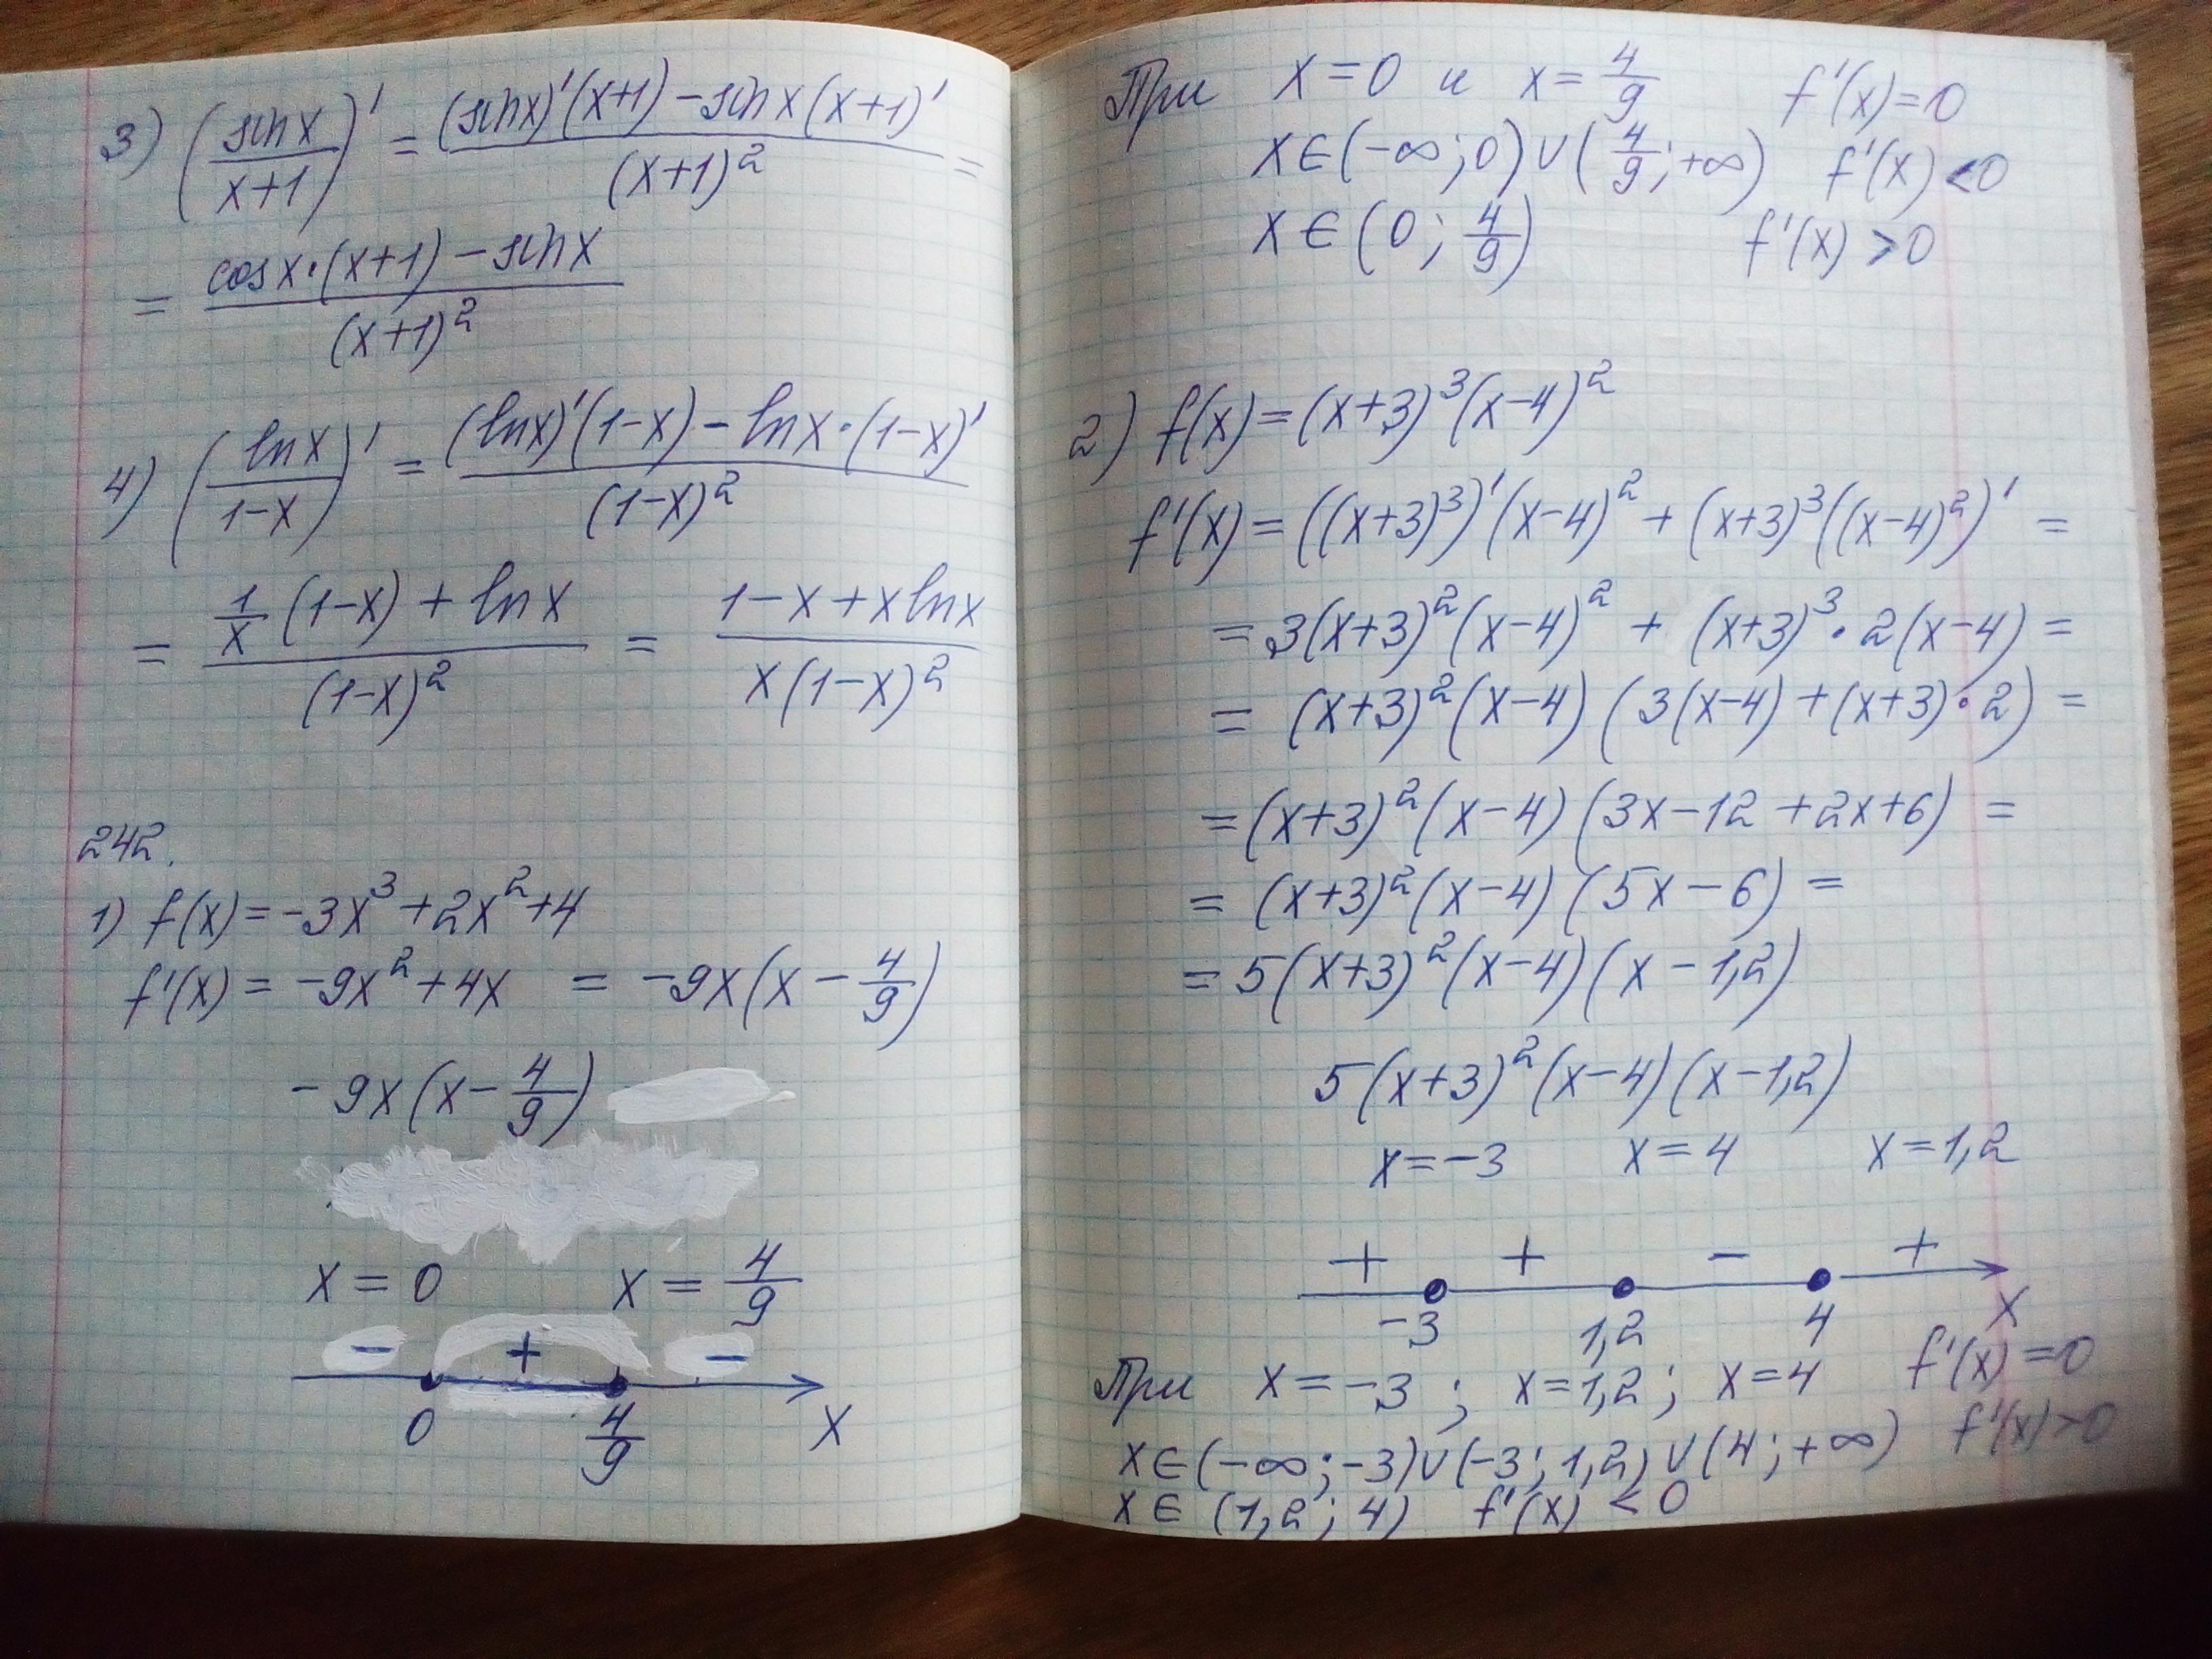 3) (sin x / x+1)' = (sin x)'(x+1) − sin x (x+1)' / (x+1)² =
= cos x · (x+1) − sin x / (x+1)²
4) (ln x / 1−x)' = (ln x)'(1−x) − ln x · (1−x)' / (1−x)²
= 1/x (1−x) + ln x / (1−x)² = 1−x+x ln x / x(1−x)²
242.
1) f(x) = −3x³ + 2x² + 4
f'(x) = −9x² + 4x = −9x(x − 4/9)
−9x(x − 4/9)
x = 0 x = 4/9
− + −
0 4/9 x
При x = 0 и x = 4/9 f'(x) = 0
x ∈ (−∞; 0) ∪ (4/9; +∞) f'(x) < 0
x ∈ (0; 4/9) f'(x) > 0
2) f(x) = (x+3)³(x−4)²
f'(x) = ((x+3)³)'(x−4)² + (x+3)³((x−4)²)' =
= 3(x+3)²(x−4)² + (x+3)³ · 2(x−4) =
= (x+3)²(x−4)(3(x−4) + (x+3) · 2) =
= (x+3)²(x−4)(3x−12+2x+6) =
= (x+3)²(x−4)(5x−6) =
= 5(x+3)²(x−4)(x−1,2)
5(x+3)²(x−4)(x−1,2)
x = −3 x = 4 x = 1,2
+ + − +
−3 1,2 4 x
При x = −3; x = 1,2; x = 4 f'(x) = 0
x ∈ (−∞; −3) ∪ (−3; 1,2) ∪ (4; +∞) f'(x)
x ∈ (1,2; 4) f'(x) < 0